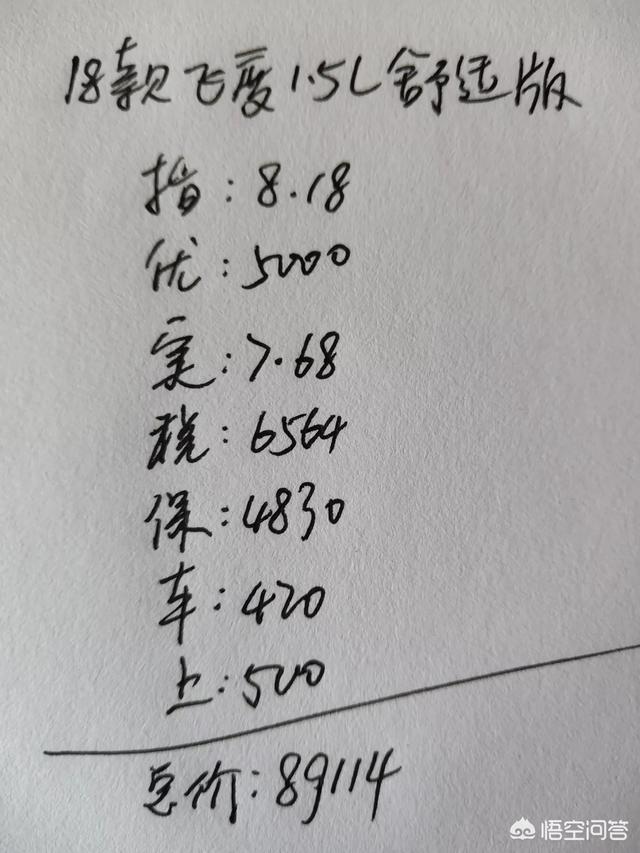 18款飞度1.5L舒适版
指:8.18
优:5000
实:7.68
税:6564
保:4830
车:420
上:500
总价:89114
悟空问答